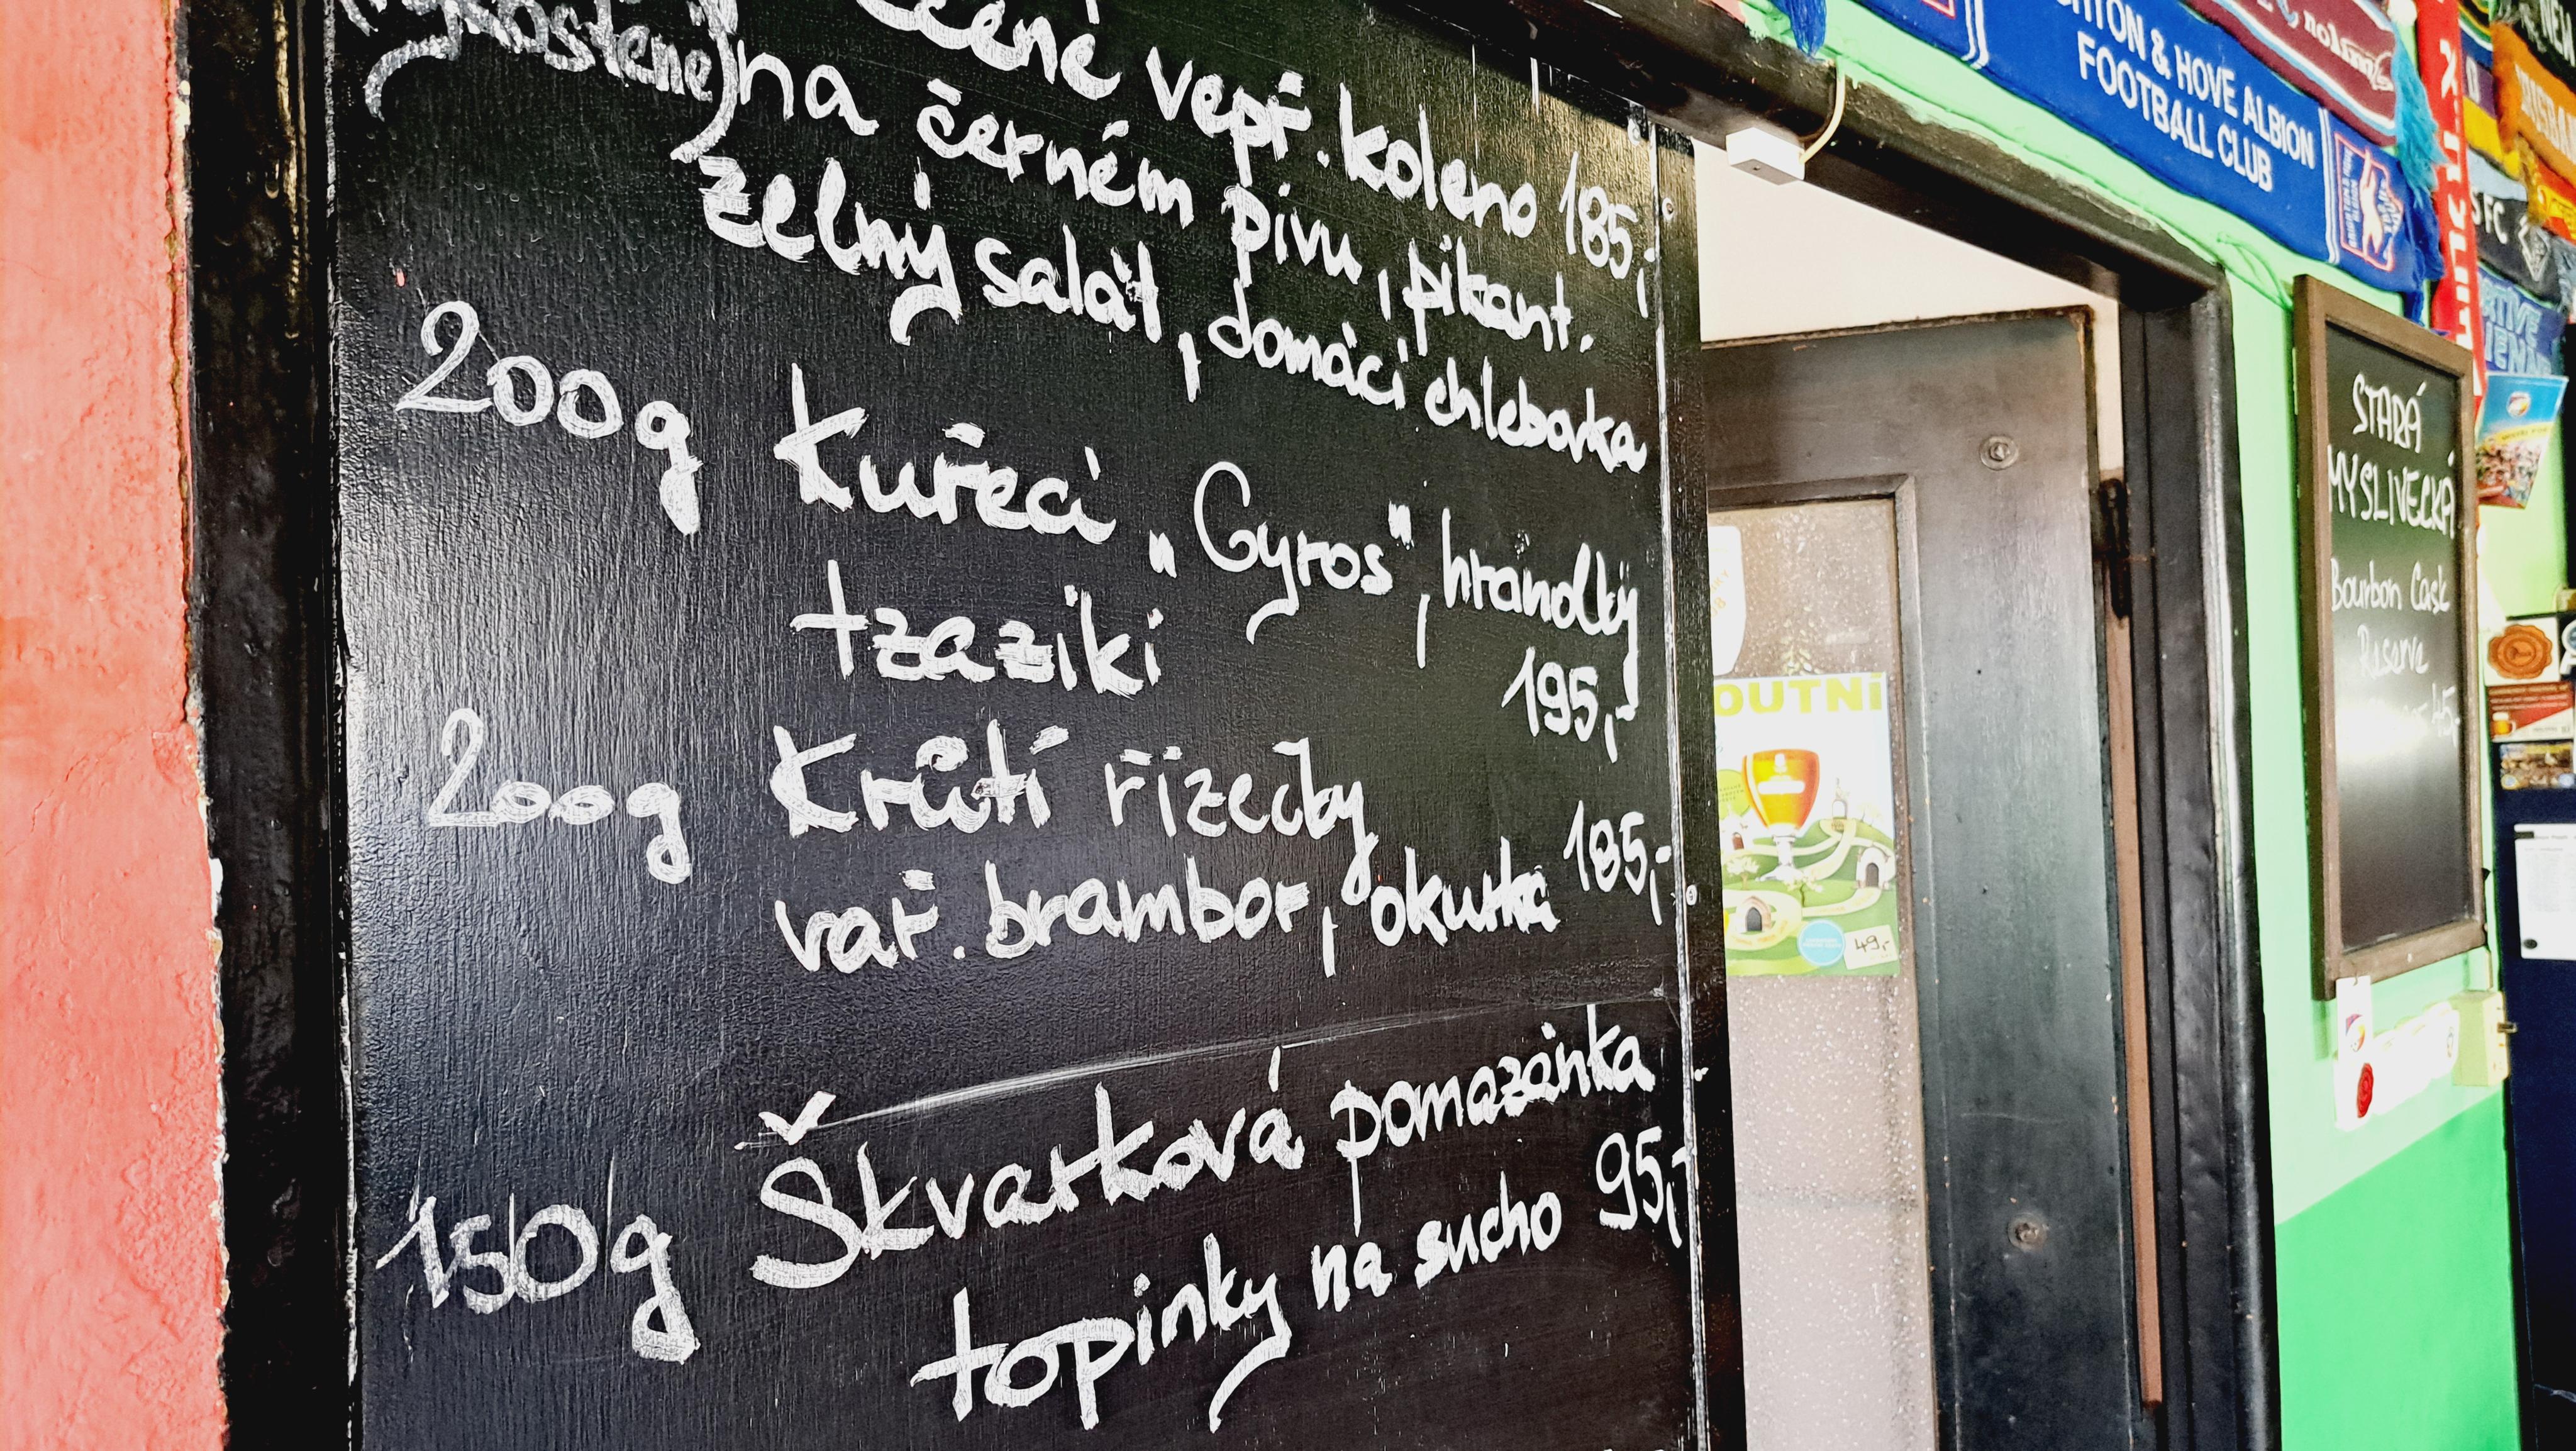 vepř. koleno 185,-
(vykostěné) na černém pivu, pikant.
zelný salát, domácí chlebovka
200g Kuřecí „Gyros", hranolky
tzaziki 195,-
200g Krůtí řízečky
vař. brambor, okurka 185,-
150g Škvarková pomazánka
topinky na sucho 95,-
HTON & HOVE ALBION
FOOTBALL CLUB
STARÁ
MYSLIVECKÁ
Bourbon Cask
Reserve
45,-
OUTNÍ
49,-
FC